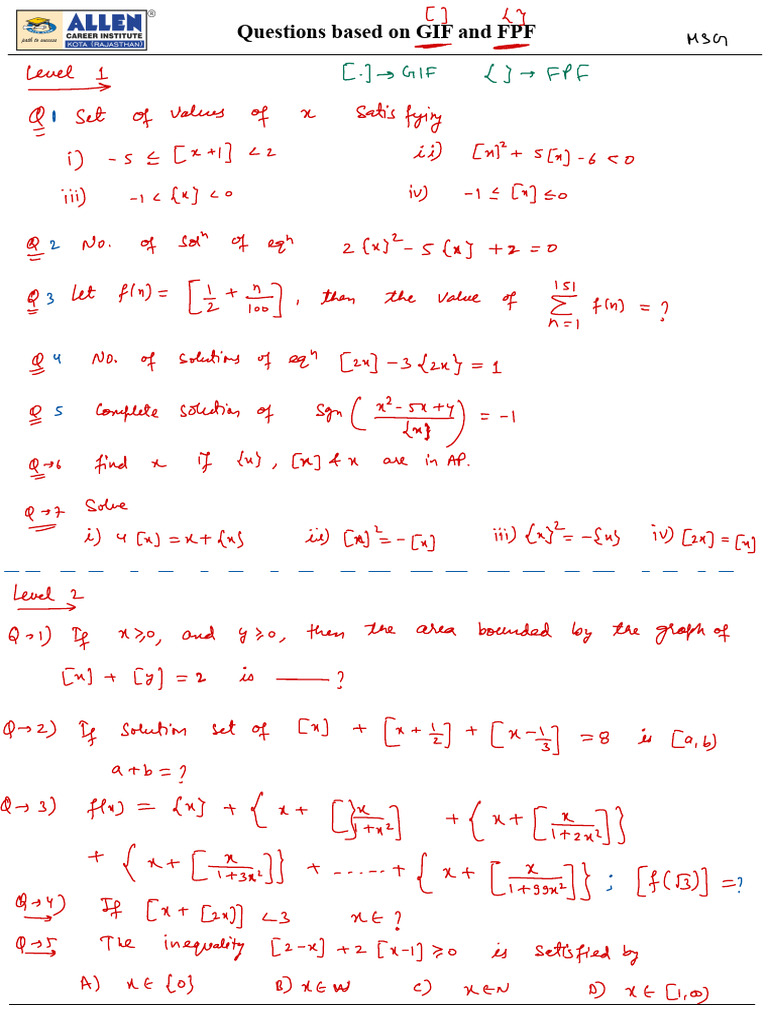 ALLEN
CAREER INSTITUTE
KOTA (RAJASTHAN)
path to success
®
[ ] { }
Questions based on GIF and FPF
MSG
Level 1
[.]→GIF { }→FPF
Q 1 Set of values of x satisfying
i) -5 ≤ [x+1] < 2 ii) [x]² + 5[x] - 6 < 0
iii) -1 < {x} < 0 iv) -1 ≤ [x] ≤ 0
Q 2 No. of solⁿ of eqⁿ 2{x}² - 5{x} + 2 = 0
Q 3 Let f(n) = [1/2 + n/100], then the value of ∑_{n=1}^{151} f(n) = ?
Q 4 No. of solutions of eqⁿ [2x] - 3{2x} = 1
Q 5 Complete solution of Sgn((x²-5x+4)/{x}) = -1
Q→6 find x if {x}, [x] & x are in AP.
Q→7 Solve
i) 4[x] = x+{x} ii) [x]² = -[x] iii) {x}² = -{x} iv) [2x] = [x]
Level 2
Q→1) If x≥0, and y≥0, then the area bounded by the graph of
[x] + [y] = 2 is ——?
Q→2) If solution set of [x] + [x+1/2] + [x-1/3] = 8 is [a,b)
a+b = ?
Q→3) f(x) = {x} + {x + [x/(1+x²)]} + {x + [x/(1+2x²)]}
+ {x + [x/(1+3x²)]} + ...... + {x + [x/(1+99x²)]} ; [f(√3)] = ?
Q→4) If [x + [2x]] < 3 x∈ ?
Q→5 The inequality [2-x] + 2[x-1] ≥ 0 is satisfied by
A) x∈{0} B) x∈W C) x∈N D) x∈[1,∞)